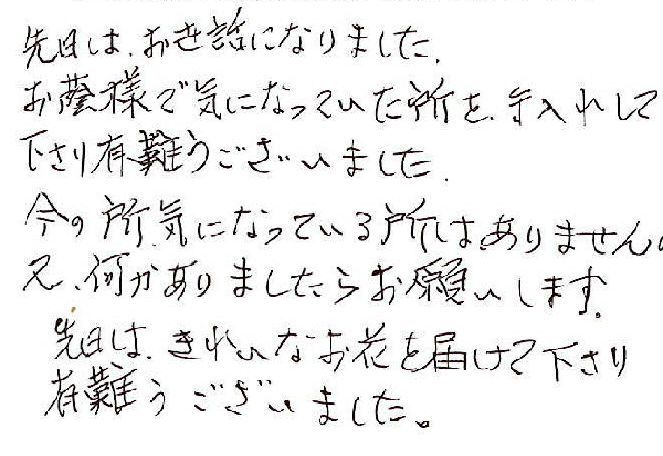 先日は、お世話になりました。
お蔭様で気になっていた所を、手入れして
下さり有難うございました。
今の所、気になっている所はありません。
又、何かありましたらお願いします。
先日は、きれいなお花を届けて下さり
有難うございました。